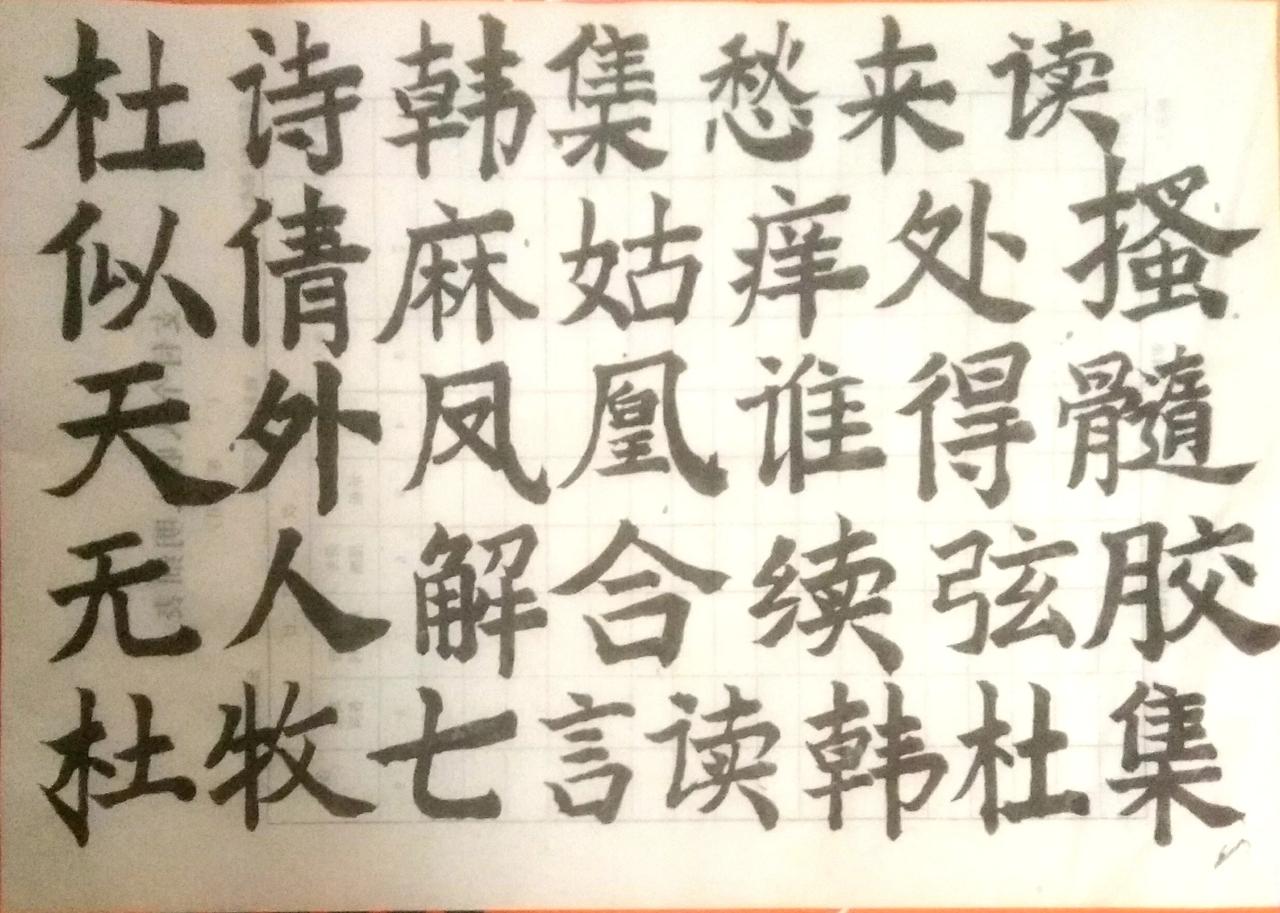 杜诗韩集愁来读
似倩麻姑痒处搔
天外凤凰谁得髓
无人解合续弦胶
杜牧七言读韩杜集